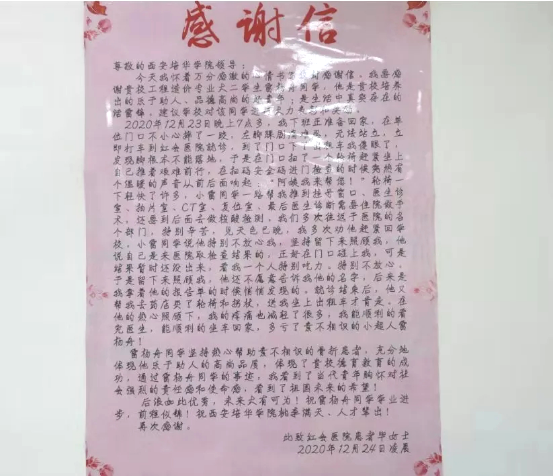 感谢信
尊敬的西安培华学院领导：
今天我怀着万分感激的心情书写这封感谢信，我要感
谢贵校工程造价专业大二学生雷杨舟同学，他是贵校培养
出的乐于助人、品德高尚的好青年；是生活中真实存在的
活雷锋，建议学校对该同学
2020年12月23日晚上7点多，我下班正准备回家，在单
位门口不小心踩了一跤，左脚踝剧痛难忍，无法站立，立
即打车到红会医院就诊，到了门口下了出租车我傻眼了，
发现脚根本不能落地，于是在门口扫了一个轮椅赶紧坐上
自己推着艰难前行，在扫码安全码进门检查的时候突然有
个温暖的声音从前后面响起："阿姨我来帮您！"轮椅一
下轻快了许多，小雷同学一路帮我推到挂号窗口、医生诊
室、拍片室、CT室、复位室，最后医生诊断需要住院做手
术，还要到后面去做核酸检测，我们多次往返于医院的各
个部门，特别辛苦，见天色已晚，我多次劝他赶紧回学
校，小雷同学说他特别不放心我，坚持留下来照顾我，他
说自己是来医院取检查结果的，正好在门口碰上我，可是
结果暂时还没出来，看我一个人特别吃力，特别不放心，
于是留下来照顾我，他还不愿意告诉我他的名字，后来是
我拿着他的报告单的时候悄悄发现的。就诊结束后，他又
帮我去药店买了轮椅和拐杖，送我坐上出租车才肯走。在
他的热心照顾下，我的疼痛也减轻了很多，我能顺利的看
完医生，能顺利的坐车回家，多亏了素不相识的小超人雷
杨舟！
雷杨舟同学坚持热心帮助素不相识的骨折患者，充分地
体现他乐于助人的高尚品质，体现了贵校德育教育的成
功，通过雷杨舟同学的事迹，我看到了当代青年胸怀对社
会强烈的责任感和使命感，看到了祖国未来的希望！
后浪如此优秀，未来大有可为！祝雷杨舟同学学业进
步，前程似锦！祝西安培华学院桃李满天、人才辈出！
再次感谢。
此致红会医院患者华女士
2020年12月24日凌晨